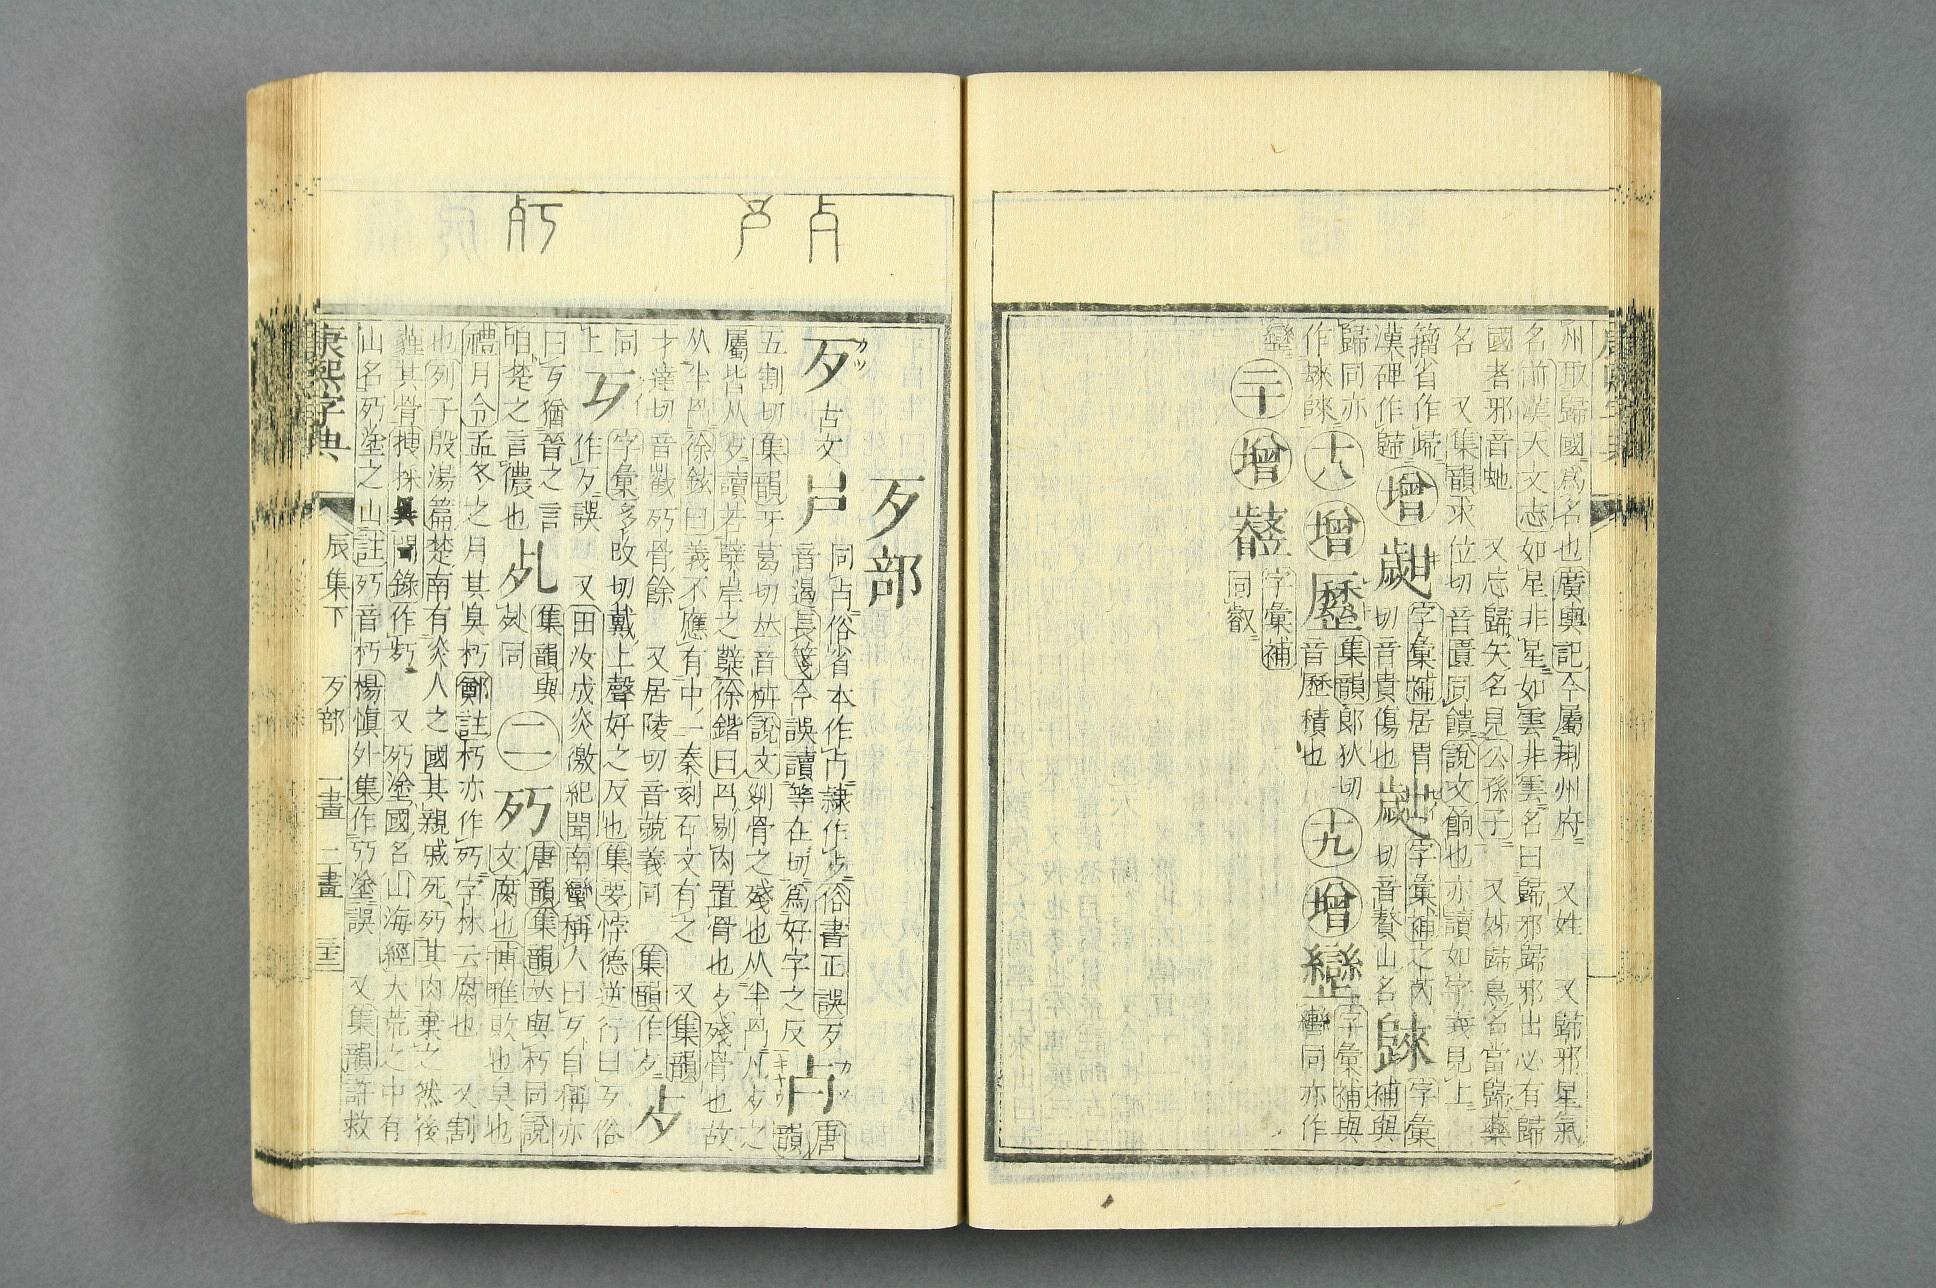 州取歸國爲名也廣輿記今屬荆州府 又姓 又歸邪星氣
名前漢天文志如星非星如雲非雲名曰歸邪歸邪出必有歸
國者邪音虵 又忘歸矢名見公孫子 又姊歸鳥名當歸藥
名 又集韻求位切音匱同饋說文餉也亦讀如字義見上
籀省作㱕
漢碑作
增
字彙補居胃
切音貴傷也
字彙補之芮
切音贅山名
字彙
補與
歸同亦
作
十八
增
集韻郎狄切
音歷積也
十九
增
字彙補與
同亦作
二十
增
字彙補
同叡
歹部
歹
カツ
古文
同歺俗省本作歺隷作歹俗書正誤歹
音遏長箋今誤讀等在切爲好字之反
歺
唐韻
五割切集韻牙葛切𠀤音枿說文剡骨之殘也从半冎凡歺之
屬皆从歺讀若櫱岸之櫱徐鍇曰冎剔肉置骨也歺殘骨也故
从半冎徐鉉曰義不應有中一秦刻石文有之 又集韻
才達切音巀死骨餘 又居陵切音兢義同 集韻作
同上
字彙多改切戴上聲好之反也集要悖德逆行曰歹俗
作歹誤 又田汝成炎徼紀聞南蠻稱人曰歹自稱亦
曰歹猶晉之言
咱楚之言儂也
集韻與
同
二
唐韻集韻𠀤與朽同說
文腐也博雅敗也臭也
禮月令孟冬之月其臭朽鄭註朽亦作㱙字林云腐也 又割
也列子殷湯篇楚南有炎人之國其親戚死㱙其肉棄之然後
薶其骨揀採異聞錄作 又㱙塗國名山海經大荒之中有
山名㱙塗之山註㱙音朽楊愼外集作 塗誤 又集韻許救
康熙字典
辰集下
歹部
一畫
二畫